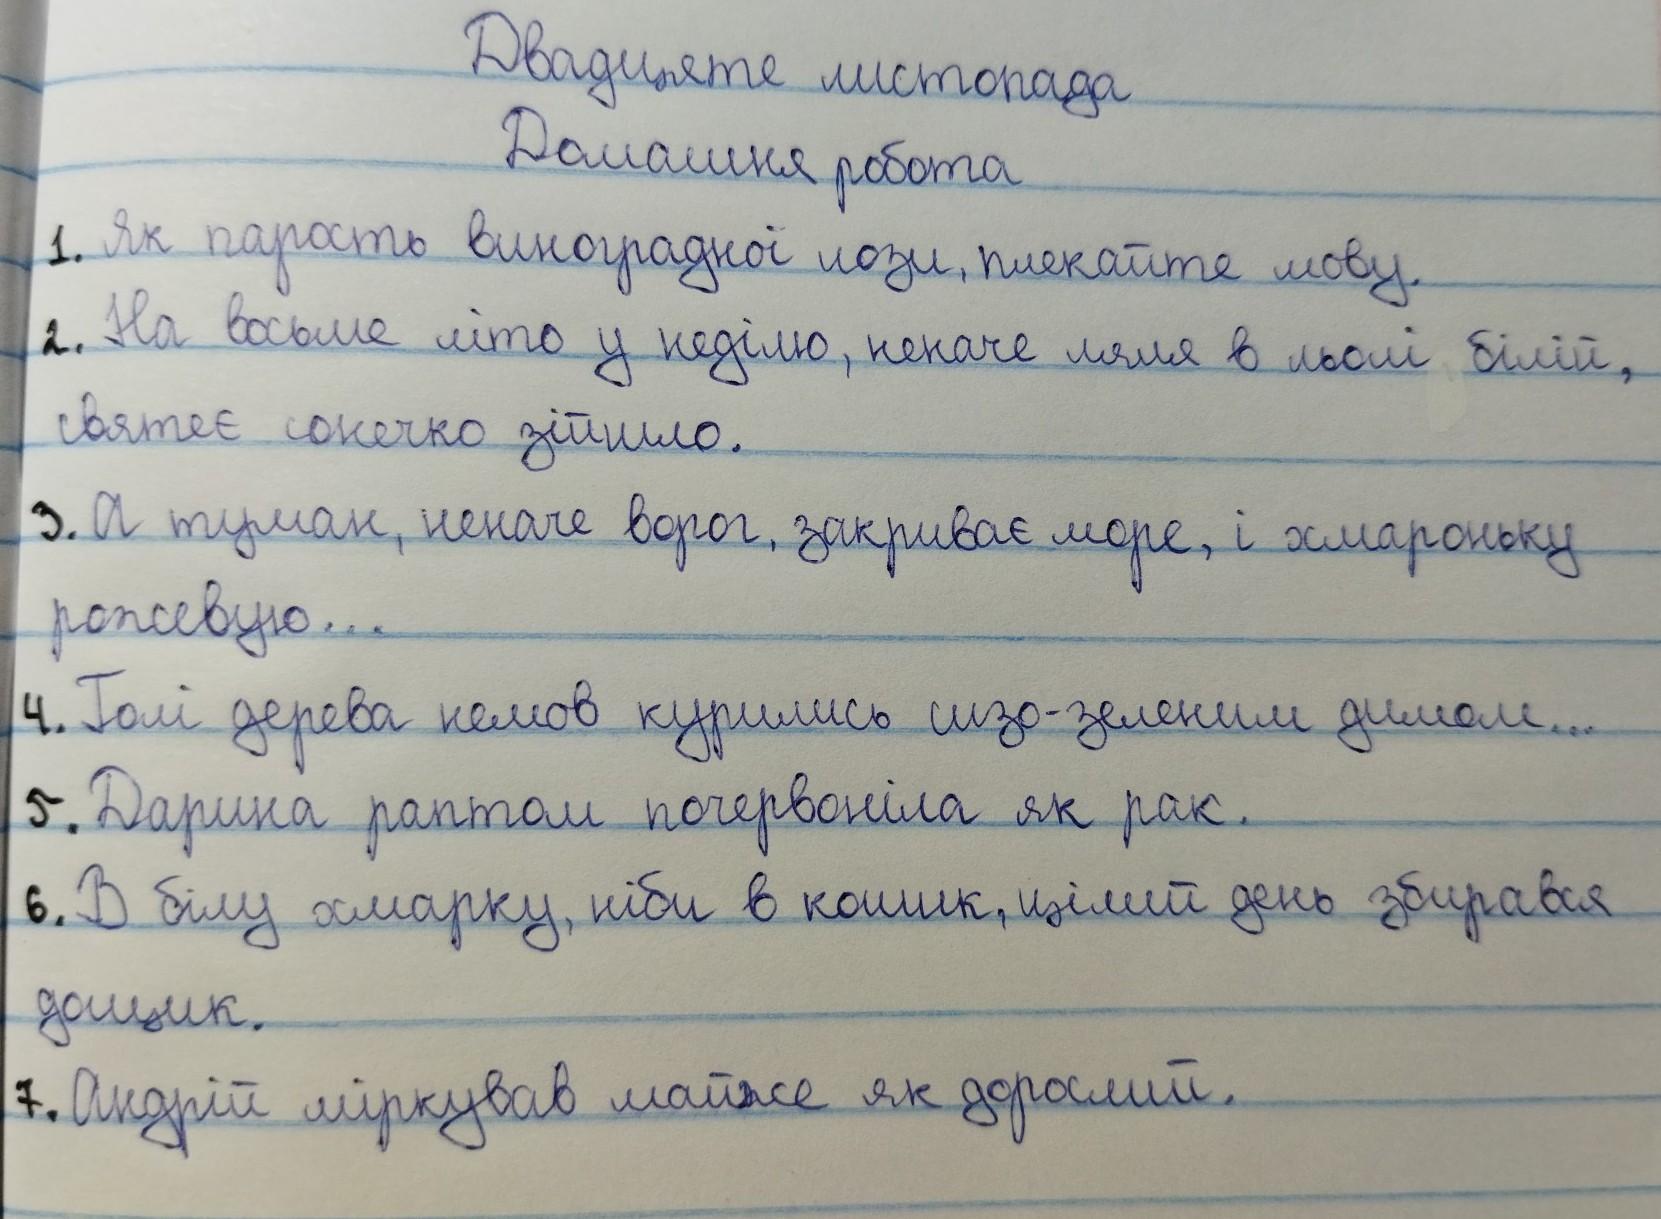 Двадцяте листопада
Домашня робота
1. Як парость виноградної лози, плекайте мову.
2. На восьме літо у неділю, неначе ляля в льолі білій,
святеє сонечко зійшло.
3. А туман, неначе ворог, закриває море, і хмароньку
рожевую...
4. Голі дерева немов курились сизо-зеленим димом...
5. Дарина раптом почервоніла як рак.
6. В білу хмарку, ніби в кошик, цілий день збирався
дощик.
7. Андрій міркував майже як дорослий.